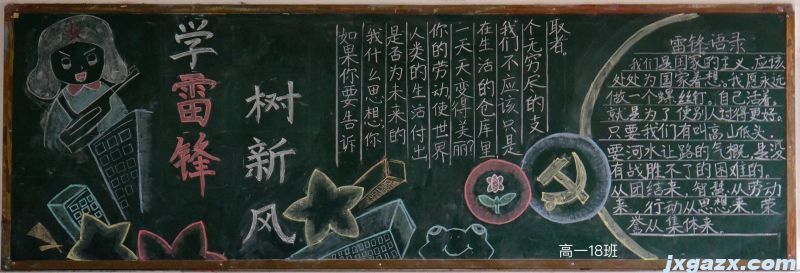 学雷锋
树新风
如果你要告诉
我什么思想，你
是否为未来的
人类的生活付出
你的劳动使世界
一天天变得美丽？
在生活的仓库里
我们不应该只是
个无穷尽的支
取者。
雷锋语录
我们是国家的主义，应该
处处为国家着想。我愿永远
做一个螺丝钉。自己活着，
就是为了使别人过得更好。
只要我们有叫高山低头，
要河水让路的气概，是没
有战胜不了的困难的，
从团结来，智慧，从劳动
来，行动从思想来，荣
誉从集体来。
高一18班
jxgazx.com